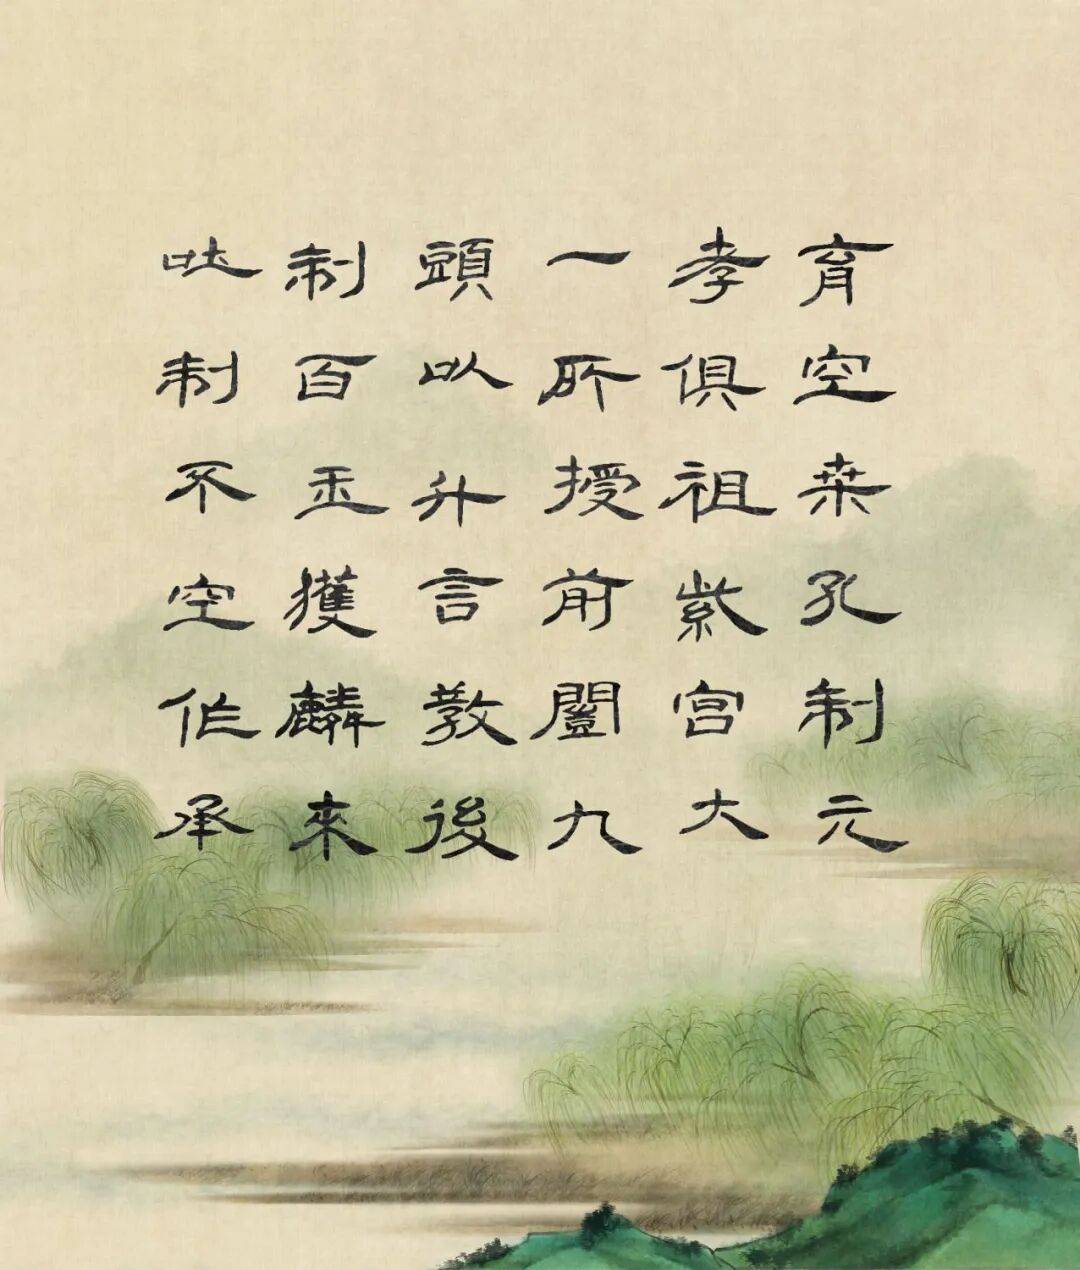 育空桒孔制元
孝俱祖紫宮大
一所授前闓九
頭以升言教後
制百王獲麟來
吐制不空作承